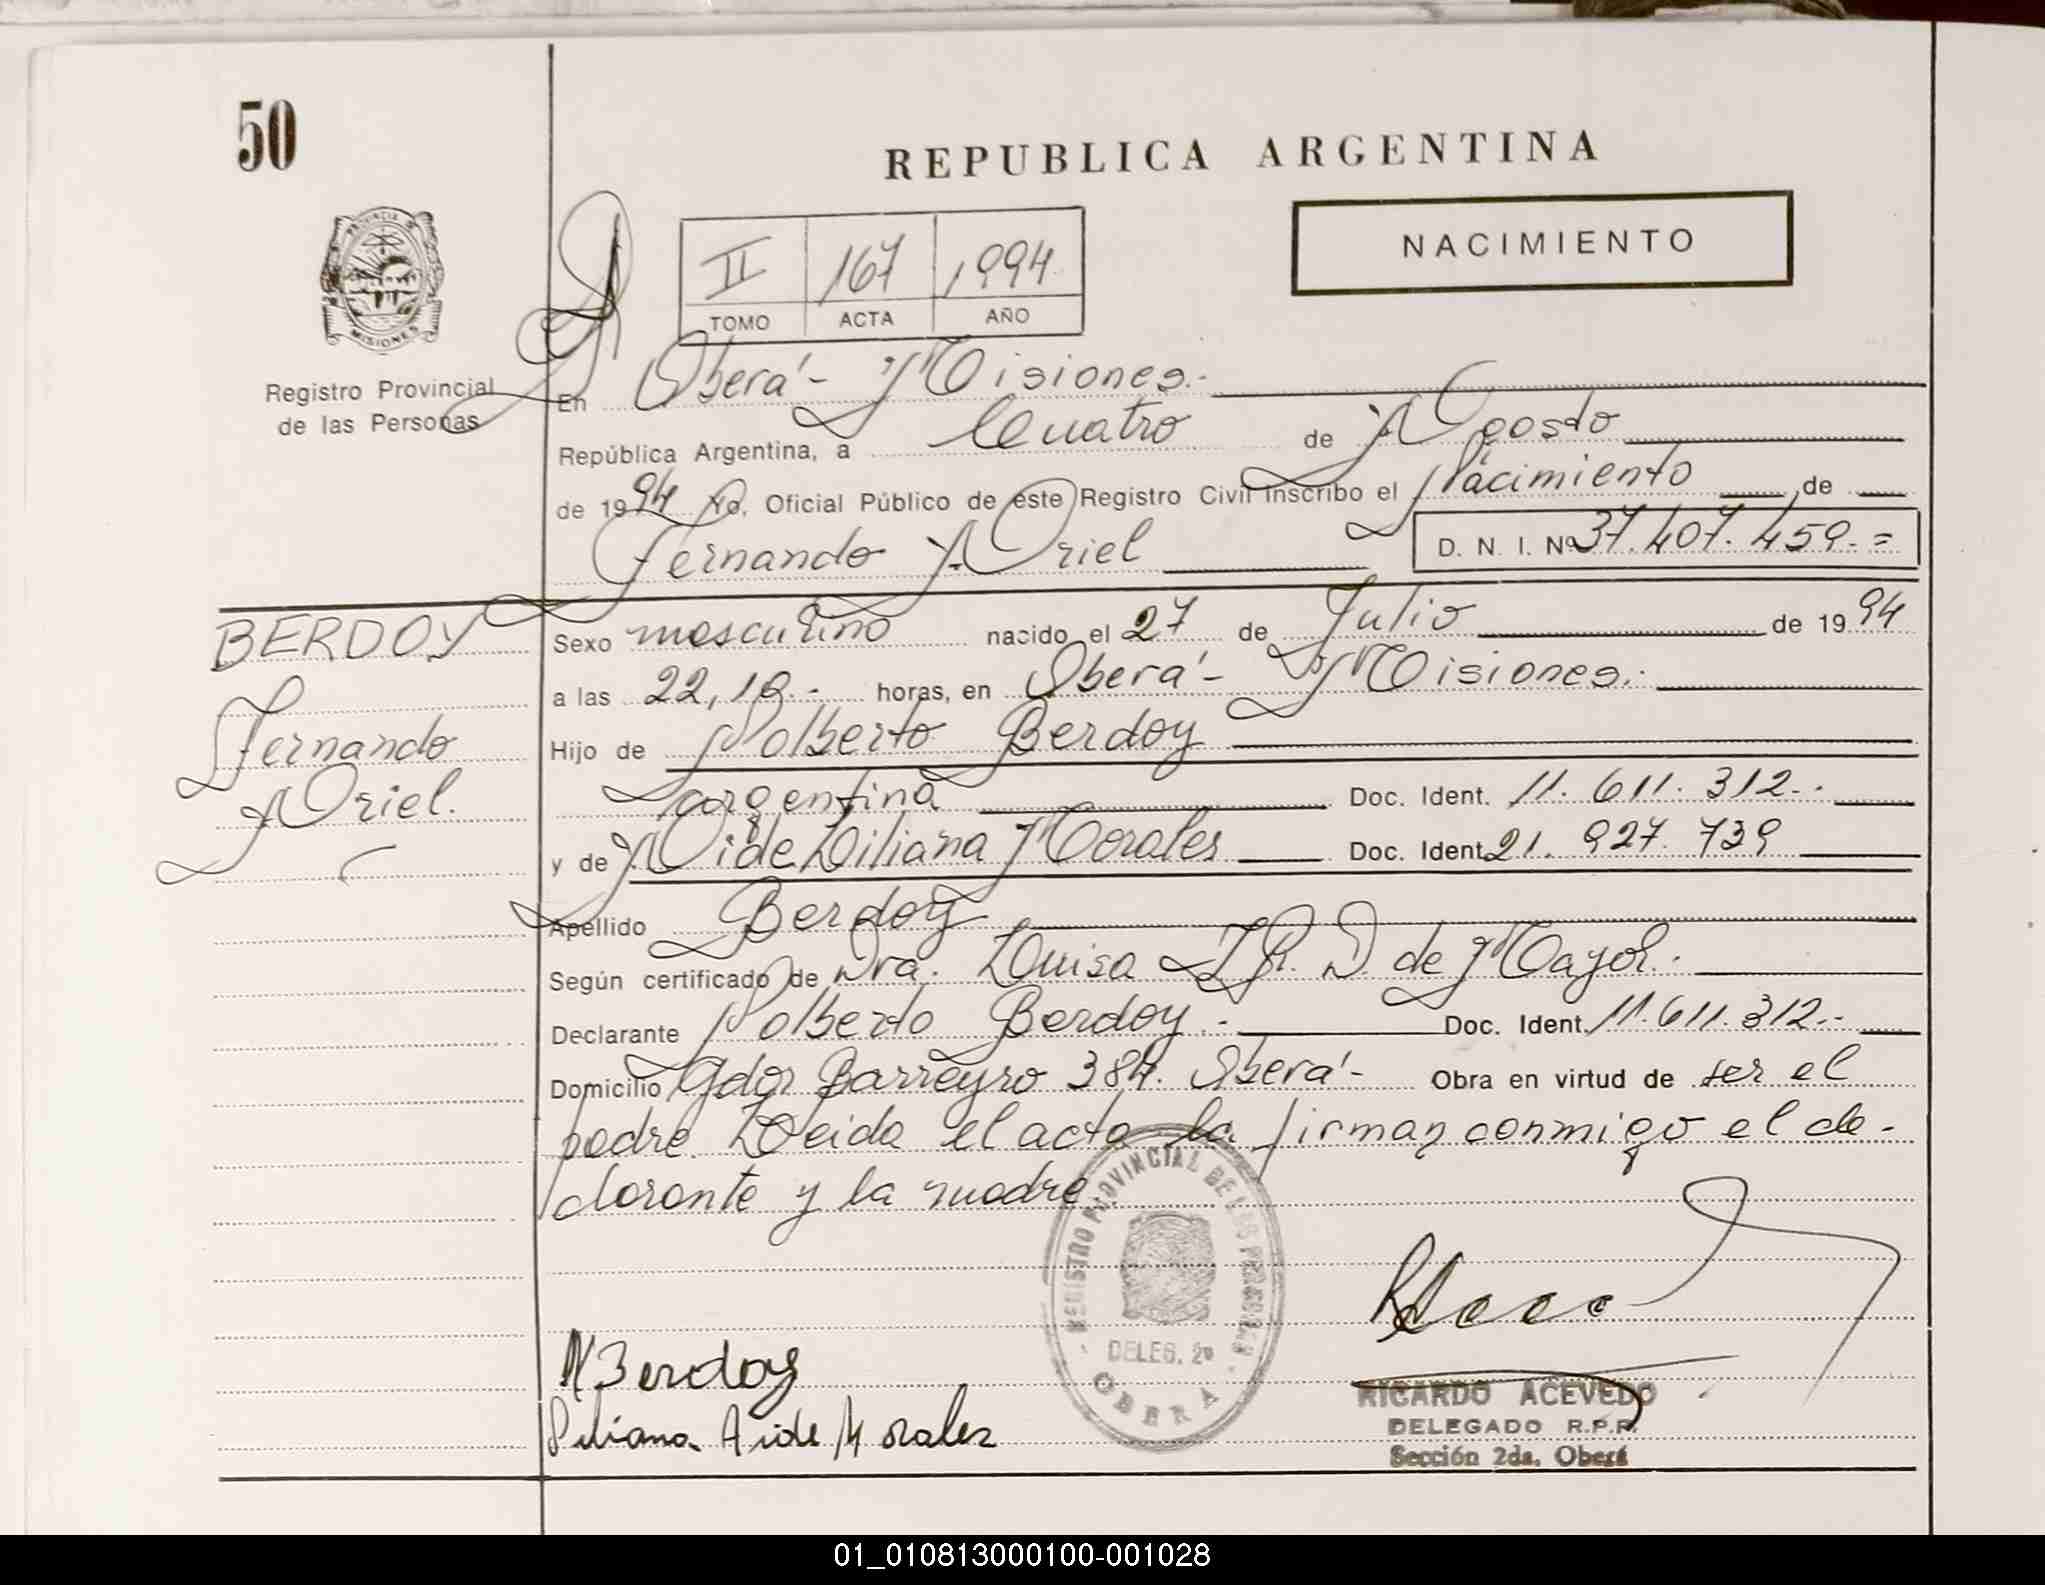 50
REPUBLICA ARGENTINA
NACIMIENTO
II 167 1994
TOMO ACTA AÑO
PROVINCIA DE
MISIONES
Registro Provincial
de las Personas
En Oberá - Misiones.-
República Argentina, a Cuatro de Agosto
de 1994 Yo, Oficial Público de este Registro Civil inscribo el Nacimiento de
Fernando Ariel D. N. I. Nº 37.407.459.=
BERDOY
Fernando
Ariel.
Sexo masculino nacido el 27 de Julio de 1994
a las 22,10.- horas, en Oberá - Misiones.-
Hijo de Nolberto Berdoy
argentina Doc. Ident. 11.611.312.-
y de Aide Liliana Morales Doc. Ident. 21.927.739
Apellido Berdoy
Según certificado de Dra. Luisa R. D. de Mayol.-
Declarante Nolberto Berdoy.- Doc. Ident. 11.611.312.-
Domicilio Gdor Barreyro 384. Oberá - Obra en virtud de ser el
padre. Leida el acta la firman conmigo el de-
clarante y la madre
REGISTRO PROVINCIAL DE LAS PERSONAS
DELEG. 2ª
OBERA
N Berdoy
Liliana Aide Morales
RICARDO ACEVEDO
DELEGADO R.P.P.
Sección 2da. Oberá
01_010813000100-001028